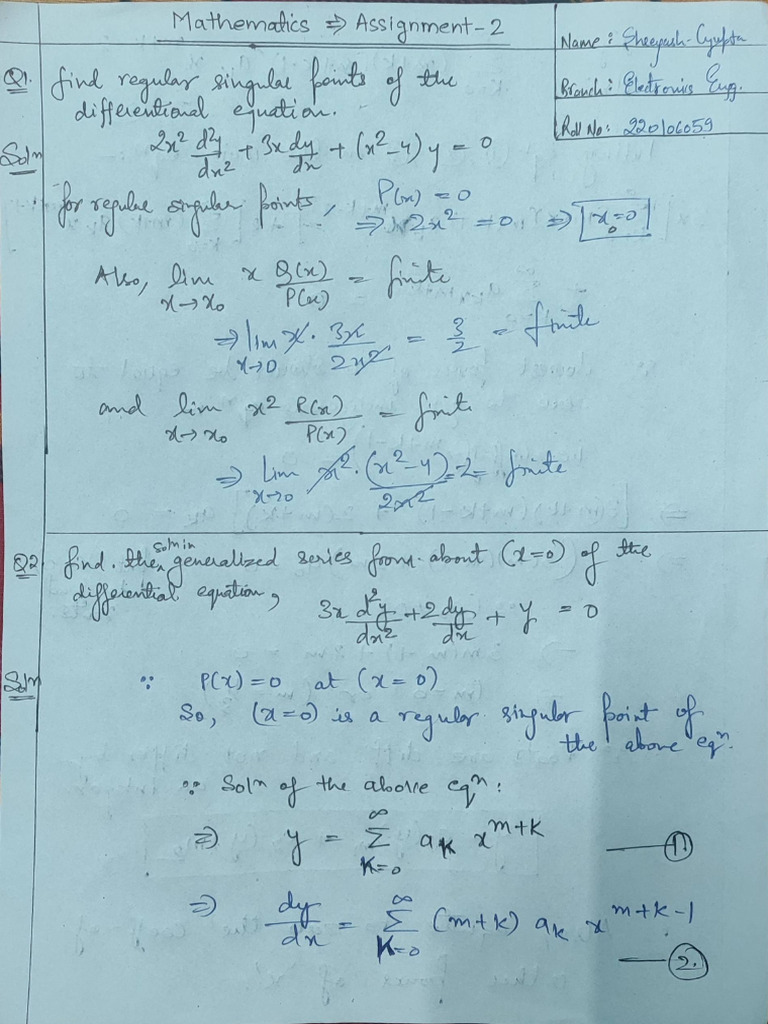 Mathematics ⇒ Assignment-2
Name : Sheeyash Gupta
Branch : Electronics Engg.
Roll No : 220106059
Q1. find regular singular points of the
differential equation.
2x² d²y/dx² + 3x dy/dx + (x²-4) y = 0
Soln
for regular singular points, P(x) = 0
⇒ 2x² = 0 ⇒ x₀=0
Also, lim x→x₀ x Q(x)/P(x) = finite
⇒ lim x→0 x · 3x/2x² = 3/2 = finite
and lim x→x₀ x² R(x)/P(x) = finite
⇒ lim x→0 x² · (x²-4)/2x² = -2 = finite
Q2 find. the soln in generalized series from about (x=0) of the
differential equation,
3x d²y/dx² + 2 dy/dx + y = 0
Soln ∵ P(x)=0 at (x=0)
So, (x=0) is a regular singular point of
the above eqⁿ.
∵ Solⁿ of the above eqⁿ :
⇒ y = ∑ K=0 ∞ aK x^m+K — 1)
⇒ dy/dx = ∑ K=0 ∞ (m+k) ak x^m+k-1
— 2.